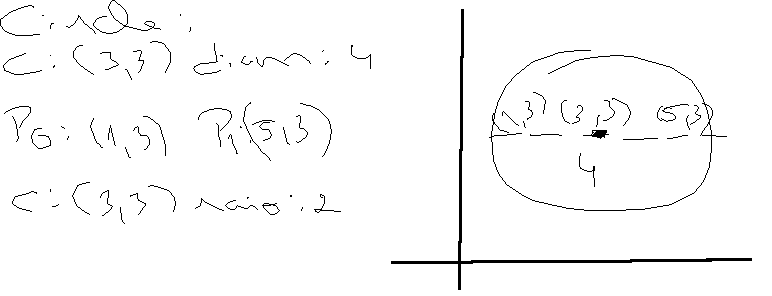 Circle:
C: (3,3) diam: 4
P0: (1,3) P1: (5,3)
C: (3,3) raio: 2
(1,3) (3,3) (5,3)
4